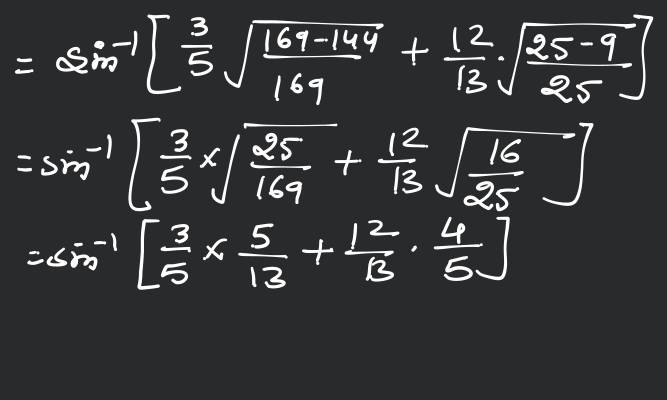 = sin⁻¹[3/5 √((169-144)/169) + 12/13 · √((25-9)/25)]
= sin⁻¹[3/5 × √(25/169) + 12/13 √(16/25)]
= sin⁻¹[3/5 × 5/13 + 12/13 · 4/5]